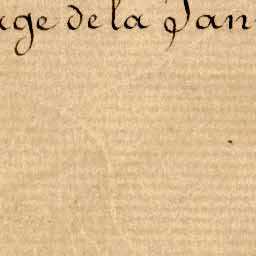 age de la Jan